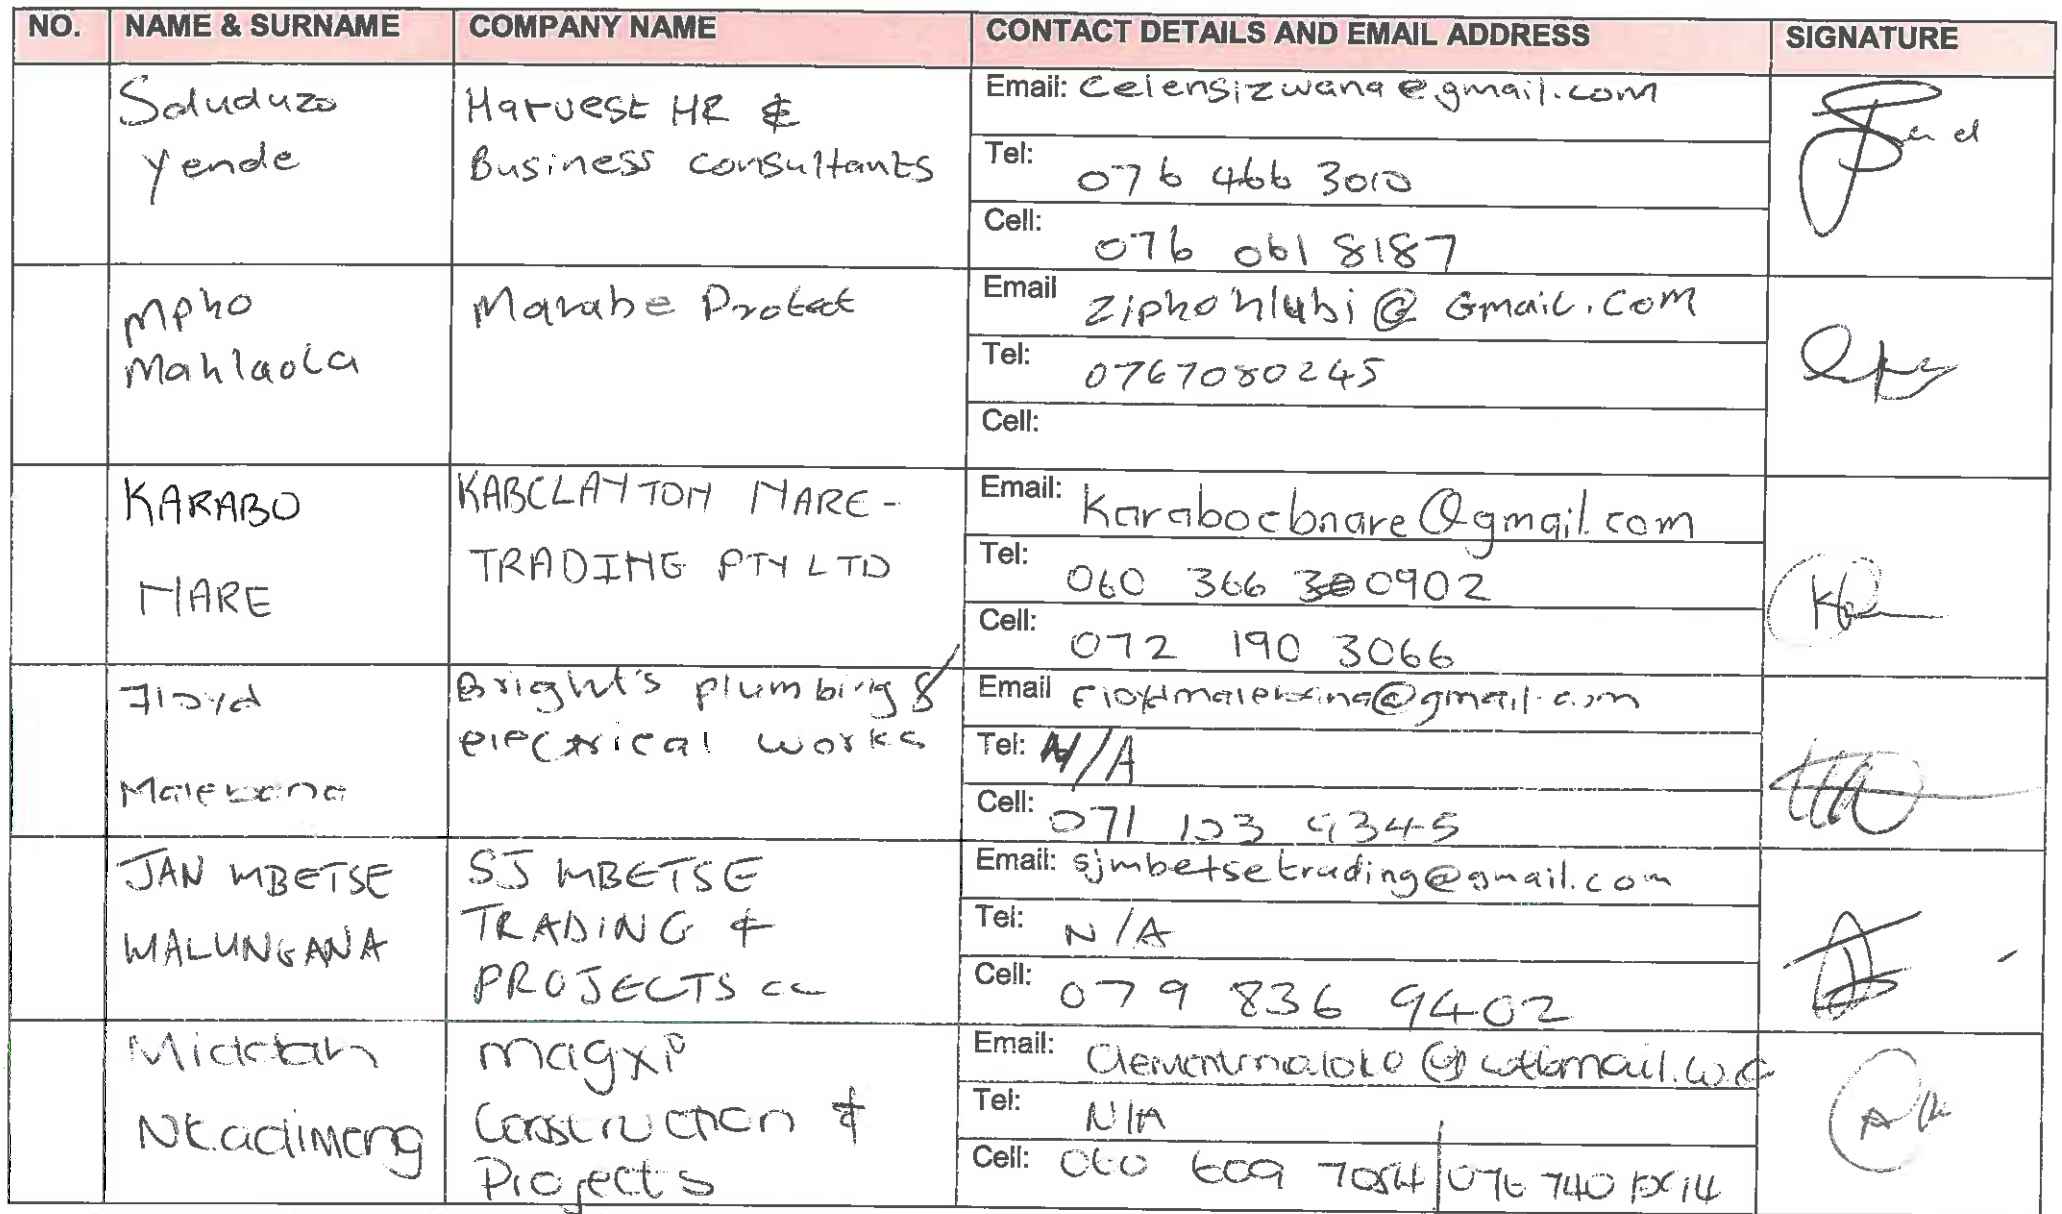 NO. NAME & SURNAME COMPANY NAME CONTACT DETAILS AND EMAIL ADDRESS SIGNATURE
Saluduzo
Yende
Harvest HR &
Business consultants
Email: Celensizwana@gmail.com
Tel: 076 466 3010
Cell: 076 061 8187
Mpho
Mahlaola
Marabe Protect
Email ziphohlubi@Gmail.com
Tel: 0767080245
Cell:
KARABO
NARE
KABCLAYTON NARE-
TRADING PTY LTD
Email: karabocbnare@gmail.com
Tel: 060 366 0902
Cell: 072 190 3066
Floyd
Malebana
Bright's plumbing &
electrical works
Email floydmalebana@gmail.com
Tel: N/A
Cell: 071 103 9345
JAN MBETSE
MALUNGANA
SJ MBETSE
TRADING &
PROJECTS cc
Email: sjmbetsetrading@gmail.com
Tel: N/A
Cell: 079 836 9402
Middah
Nkadimeng
Magxi
Construction &
Projects
Email:
Tel: N/A
Cell: 060 609 7084 / 076 740